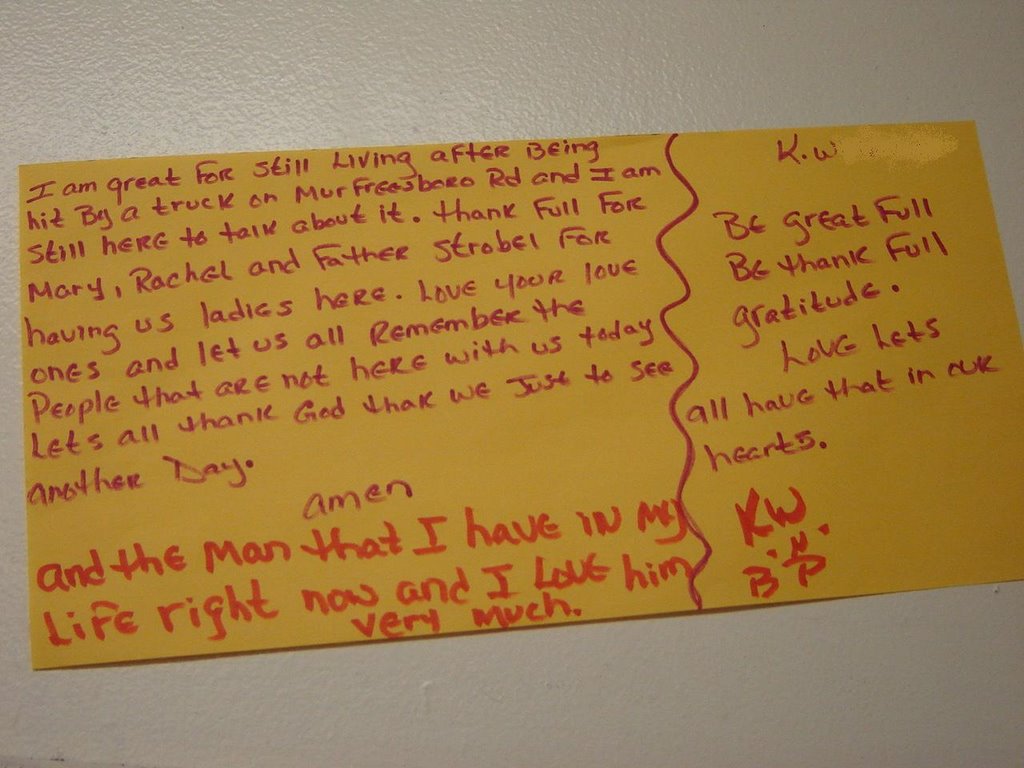 I am great For Still Living after Being
hit By a truck on Murfreesboro Rd and I am
Still here to talk about it. thank Full For
Mary, Rachel and Father Strobel For
having us ladies here. Love your love
ones and let us all Remember the
People that are not here with us today
Lets all thank God that we Just to see
another Day.
amen
and the man that I have in my
Life right now and I Love him
very much.
K.W
Be great Full
Be thank Full
gratitude.
Love Lets
all have that in our
hearts.
KW
. N .
B P